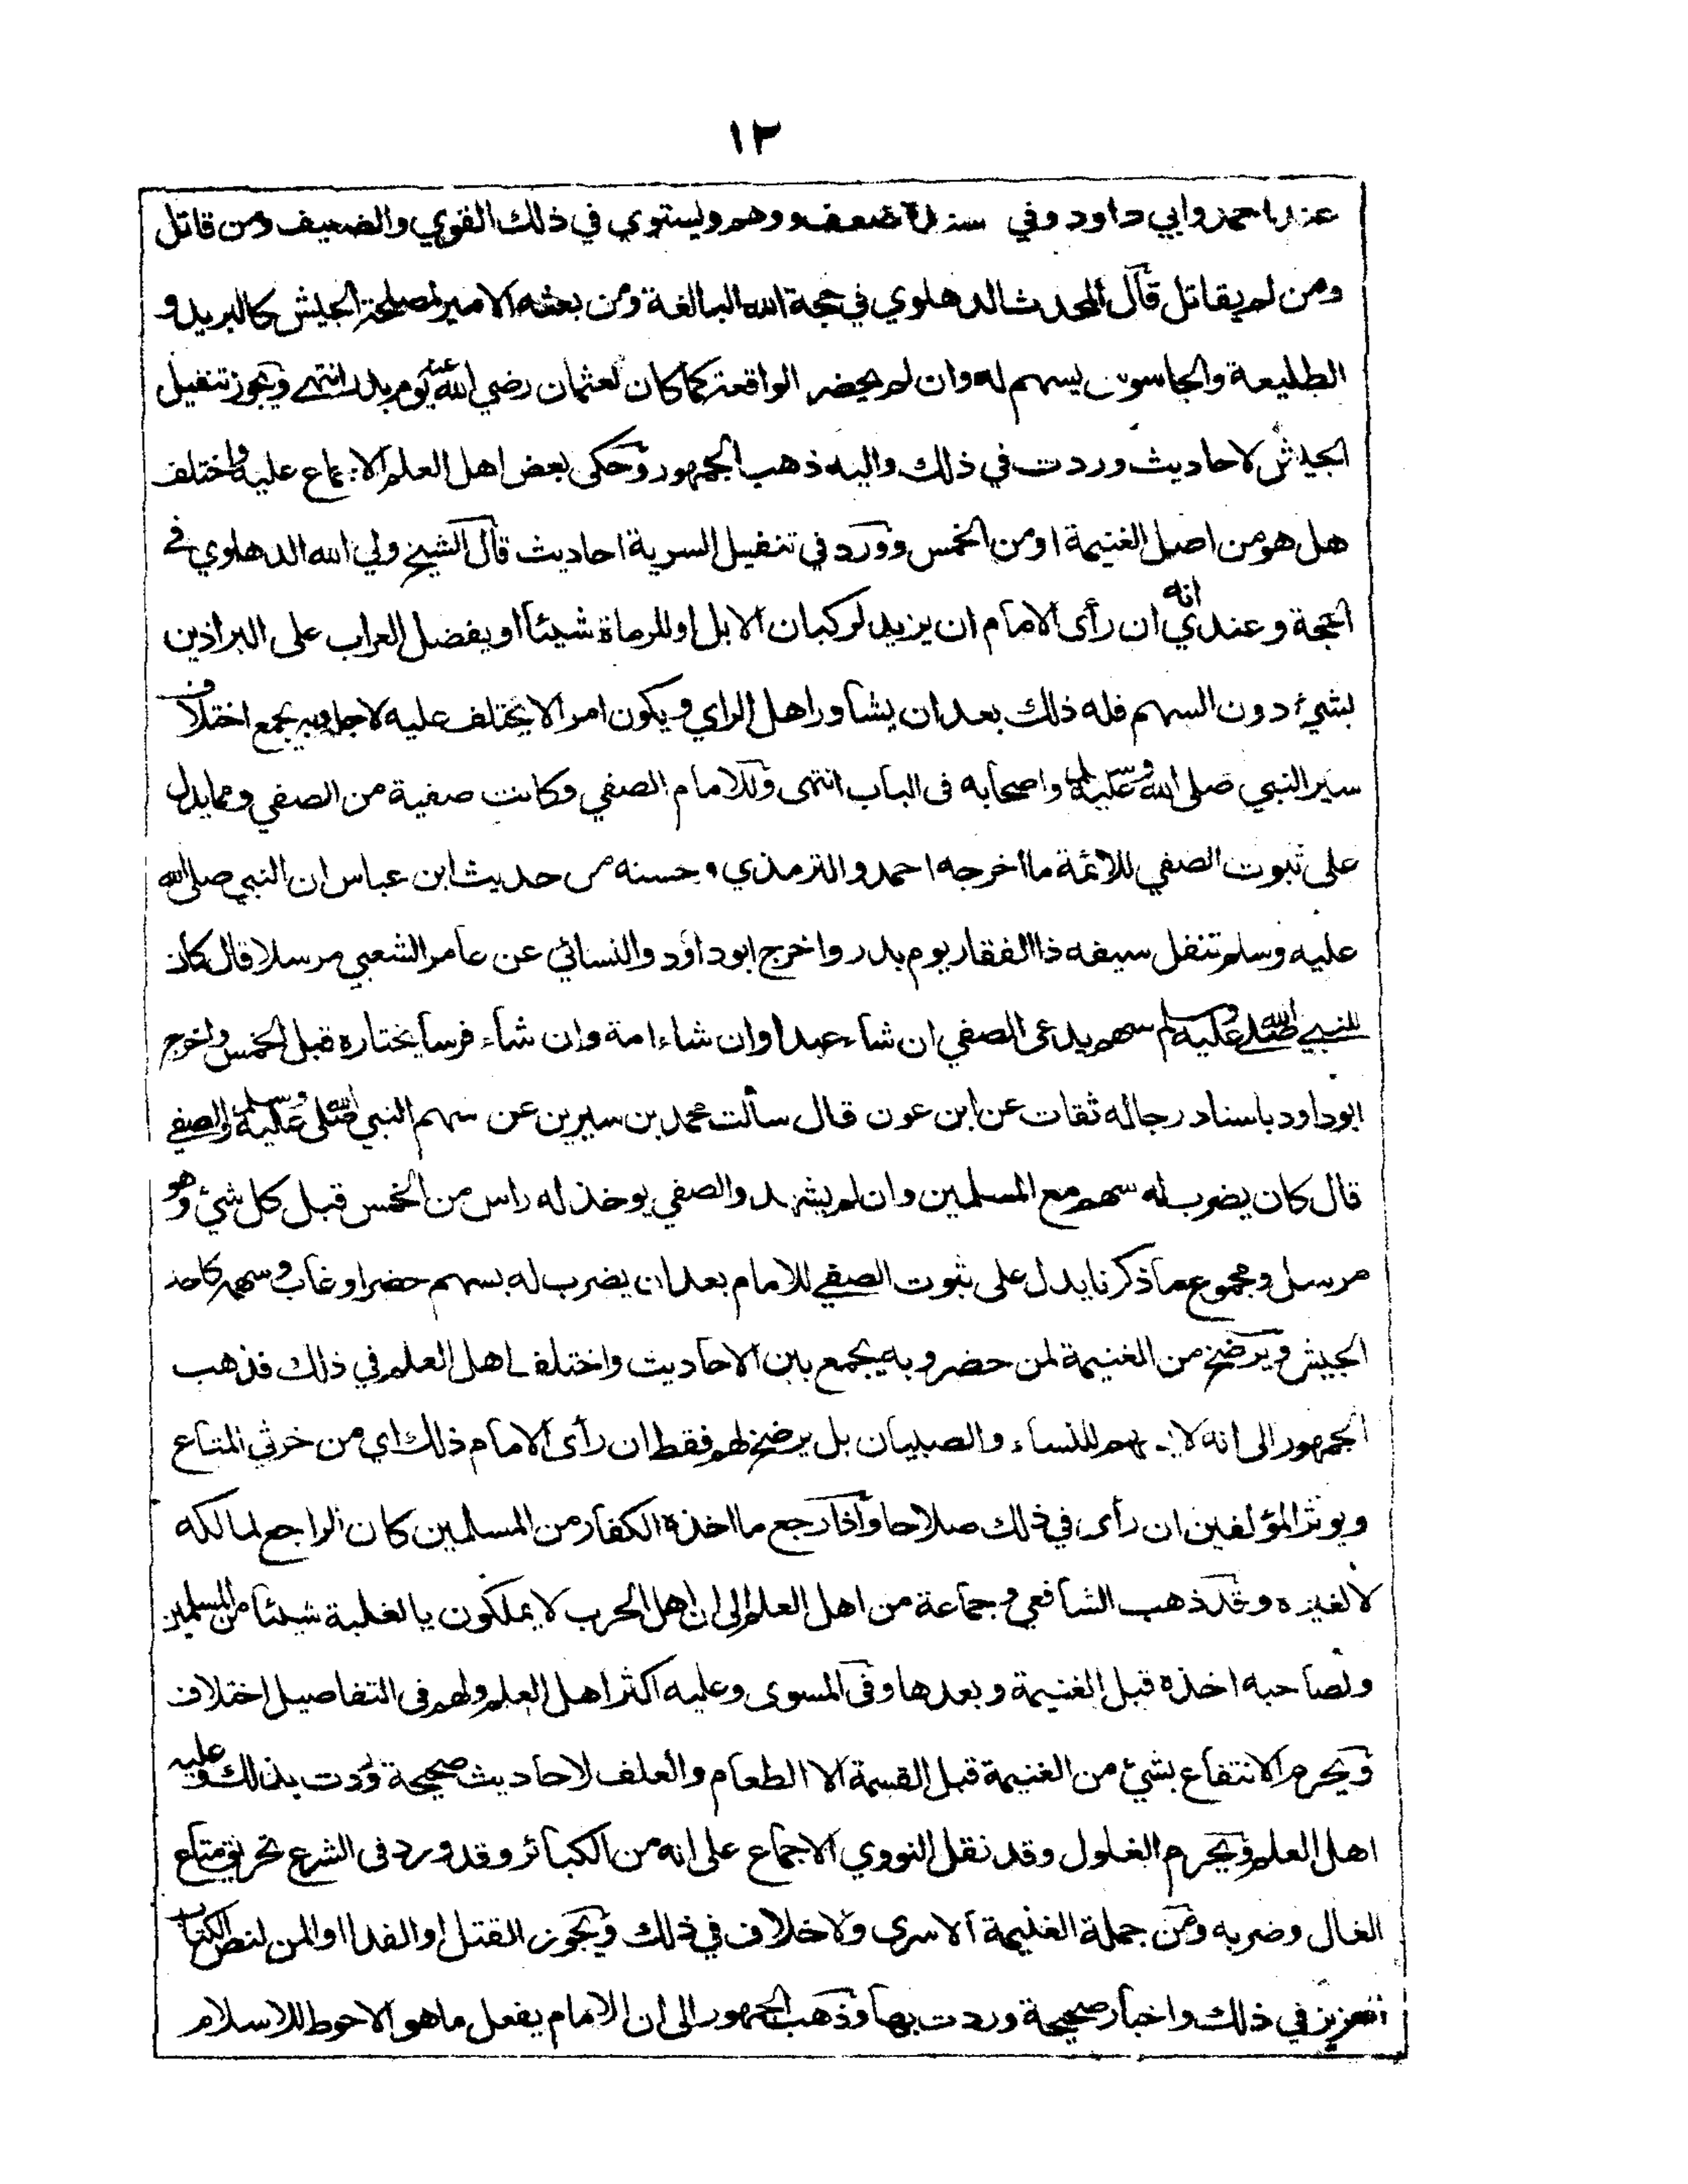 ١٢
عند احمد وابي داود وفي سنده ضعف ووهم ويستوي في ذلك القوي والضعيف ومن قاتل
ومن لم يقاتل قال المحدث الدهلوي في حجة الله البالغة ومن بعثه الامير لمصلحة الجيش كالبريد و
الطليعة والجاسوس يسهم له وان لم يحضر الواقعة كما كان لعثمان رضي الله عنه يوم بدر انتهى ويجوز تنفيل
الجيش لاحاديث وردت في ذلك واليه ذهب الجمهور وحكى بعض اهل العلم الاجماع عليه واختلف
هل هو من اصل الغنيمة او من الخمس وورد في تنفيل السرية احاديث قال الشيخ ولي الله الدهلوي في
الحجة وعندي انه ان رأى الامام ان يزيد لركبان الابل او للرماة شيئا او يفضل العراب على البراذين
بشيء دون السهم فله ذلك بعد ان يشاور اهل الراي ويكون امرا لا يختلف عليه لاجله وبه يجمع اختلاف
سير النبي صلى الله عليه وسلم واصحابه فى الباب انتهى وللامام الصفي وكانت صفية من الصفي ومما يدل
على ثبوت الصفي للائمة ما اخرجه احمد والترمذي وحسنه من حديث ابن عباس ان النبي صلى الله
عليه وسلم تنفل سيفه ذا الفقار يوم بدر واخرج ابو داود والنسائي عن عامر الشعبي مرسلا قال كان
للنبي صلى الله عليه وسلم سهم يدعى الصفي ان شاء عبدا وان شاء امة وان شاء فرسا يختاره قبل الخمس واخرج
ابو داود باسناد رجاله ثقات عن ابن عون قال سألت محمد بن سيرين عن سهم النبي صلى الله عليه وسلم والصفي
قال كان يضرب له سهم مع المسلمين وان لم يشهد والصفي يوخذ له راس من الخمس قبل كل شيء وهو
مرسل ومجموع ما ذكرنا يدل على ثبوت الصفي للامام بعد ان يضرب له بسهم حضر او غاب وسهمه كاحد
الجيش ويرضخ من الغنيمة لمن حضر وبه يجمع بين الاحاديث واختلف اهل العلم في ذلك فذهب
الجمهور الى انه لا يسهم للنساء والصبيان بل يرضخ لهم فقط ان رأى الامام ذلك اي من خرثي المتاع
ويوثر المؤلفين ان رأى في ذلك صلاحا واذا رجع ما اخذه الكفار من المسلمين كان الراجع لمالكه
لا لغيره وقد ذهب الشافعي وجماعة من اهل العلم الى ان اهل الحرب لا يملكون بالغلبة شيئا من المسلمين
ولصاحبه اخذه قبل الغنيمة وبعدها وفى المسوى وعليه اكثر اهل العلم ولهم فى التفاصيل اختلاف
ويحرم الانتفاع بشيء من الغنيمة قبل القسمة الا الطعام والعلف لاحاديث صحيحة وردت بذلك وعليه
اهل العلم ويحرم الغلول وقد نقل النووي الاجماع على انه من الكبائر وقد ورد فى الشرع تحريق متاع
الغال وضربه ومن جملة الغنيمة الاسرى ولا خلاف في ذلك ويجوز القتل او الفدا او المن لنص الكتاب
العزيز في ذلك واخبار صحيحة وردت بها وذهب الجمهور الى ان الامام يفعل ما هو الاحوط للاسلام